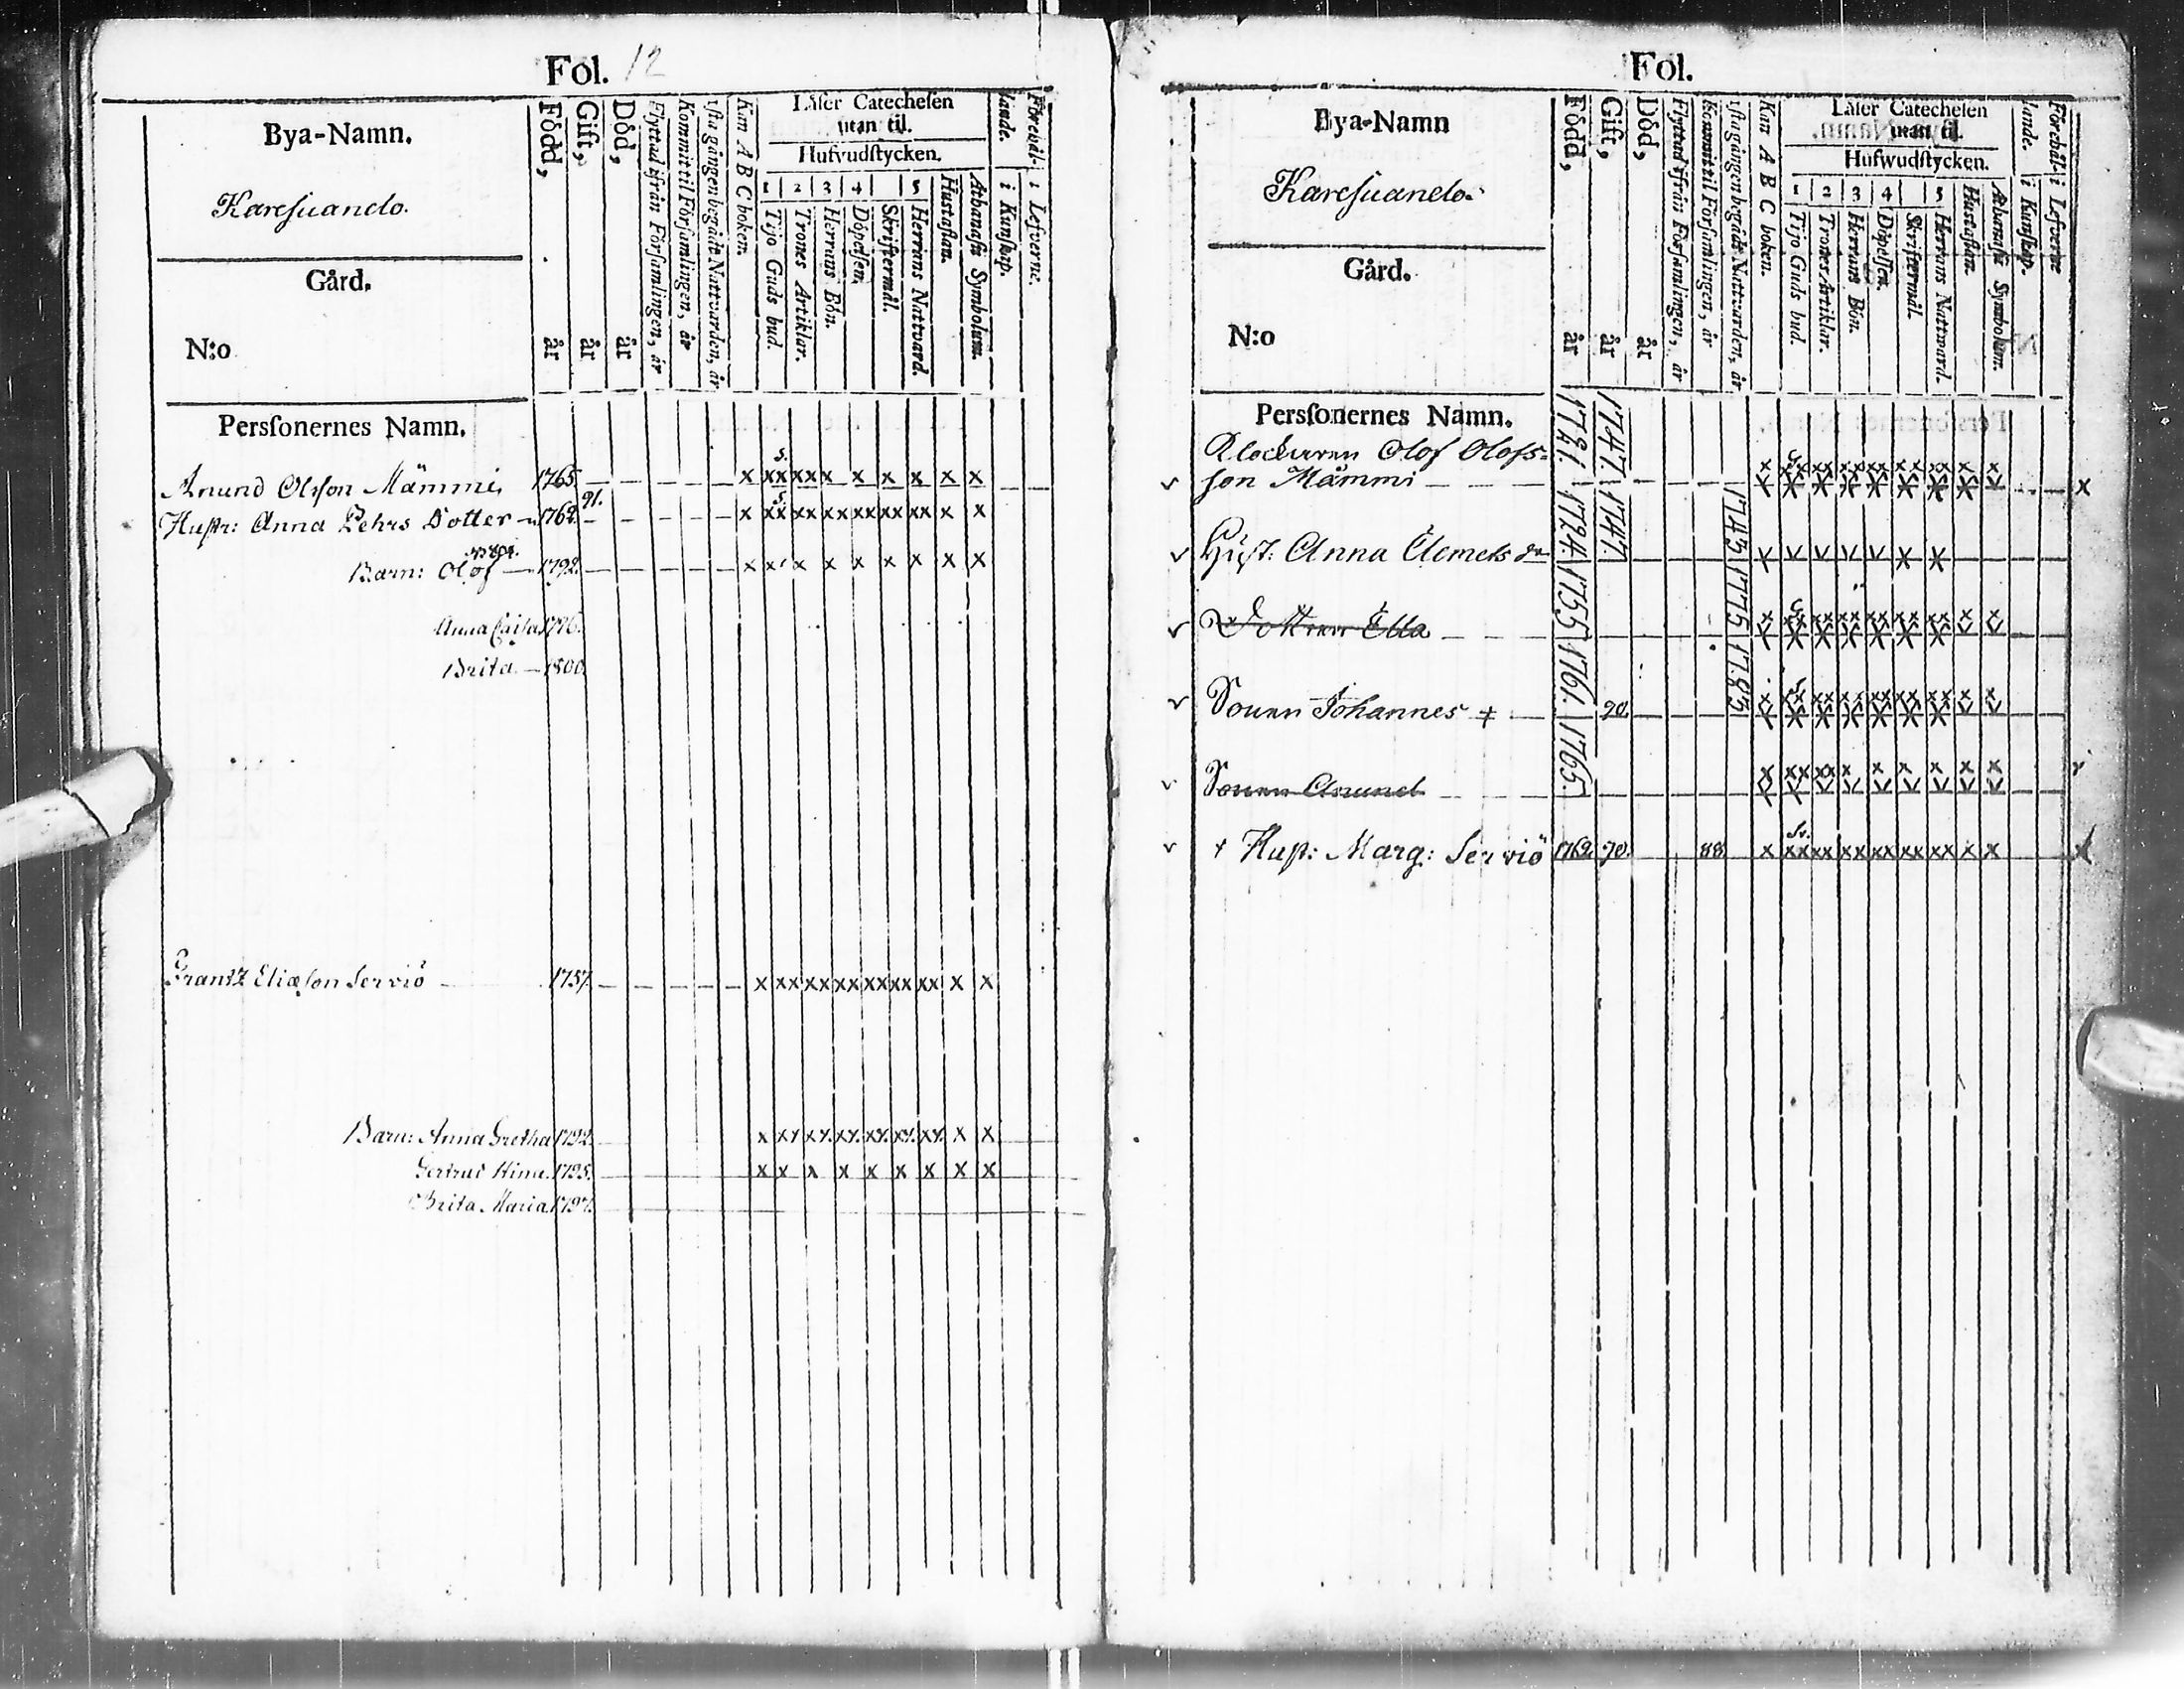 Fol. 12
Bya-Namn.
Karesuando.
Gård.
N:o
Född, år
Gift, år
Död, år
Flyttad ifrån Församlingen, år
Kommit til Församlingen, år
1sta gången begådt Nattvarden, år
Kan A B C boken.
Läser Catechesen
utan til.
Hufvudstycken.
1 2 3 4 5
Tijo Guds bud.
Trones Artiklar.
Herrans Bön.
Döpelsen
Skriftermål.
Herrans Nattvard.
Hustaflan.
Athanasii Symbolum.
Förehållande.
i Kunskap.
i Lefverne.
Personernes Namn.
Anund Olsson Mämmi 1765 x xx xx x x x x x x
Hustr: Anna Pehrs Dotter 1762. 91. x xx xx xx xx xx xx x x
Barn: Olof 1792. x x x x x x x x x
Anna Caisa 1796.
Brita 1800.
Frantz Eliæson Serviö 1757. x xx xx xx xx xx xx x x
Barn: Anna Gretha 1792. x xx xx xx xx xx xx x x
1795. x x x x x x x x x
Brita Maria 1797.
Fol.
Bya-Namn
Karesuando.
Gård.
N:o
Född, år
Gift, år
Död, år
Flyttad ifrån Församlingen, år
Kommit til Församlingen, år
1sta gången begådt Nattvarden, år
Kan A B C boken.
Läser Catechesen
utan til.
Hufwudstycken.
1 2 3 4 5
Tijo Guds bud.
Trones Artiklar.
Herrans Bön.
Döpelsen.
Skriftermål.
Herrans Nattward.
Hustaflan.
Athanasii Symbolum.
Förehållande.
i Kunskap.
i Lefverne
Personernes Namn.
Klockaren Olof Olofs-
son Mämmi 1721. 1747.
Hust: Anna Clemets dr 1724. 1747. 1743
Dottren Ella 1755 1775
Sonen Johannes 1761. 90. 1783
Sonen Anund 1765.
+ Hust: Marg: Serviö 1762. 90. 88 x xx xx xx xx xx xx x x